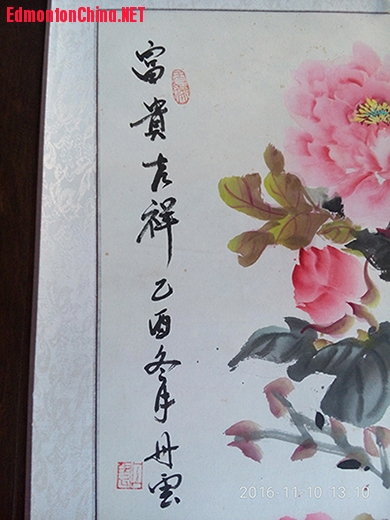 EdmontonChina.NET
富貴吉祥乙酉冬月丹雲
2016.11.10 13:10